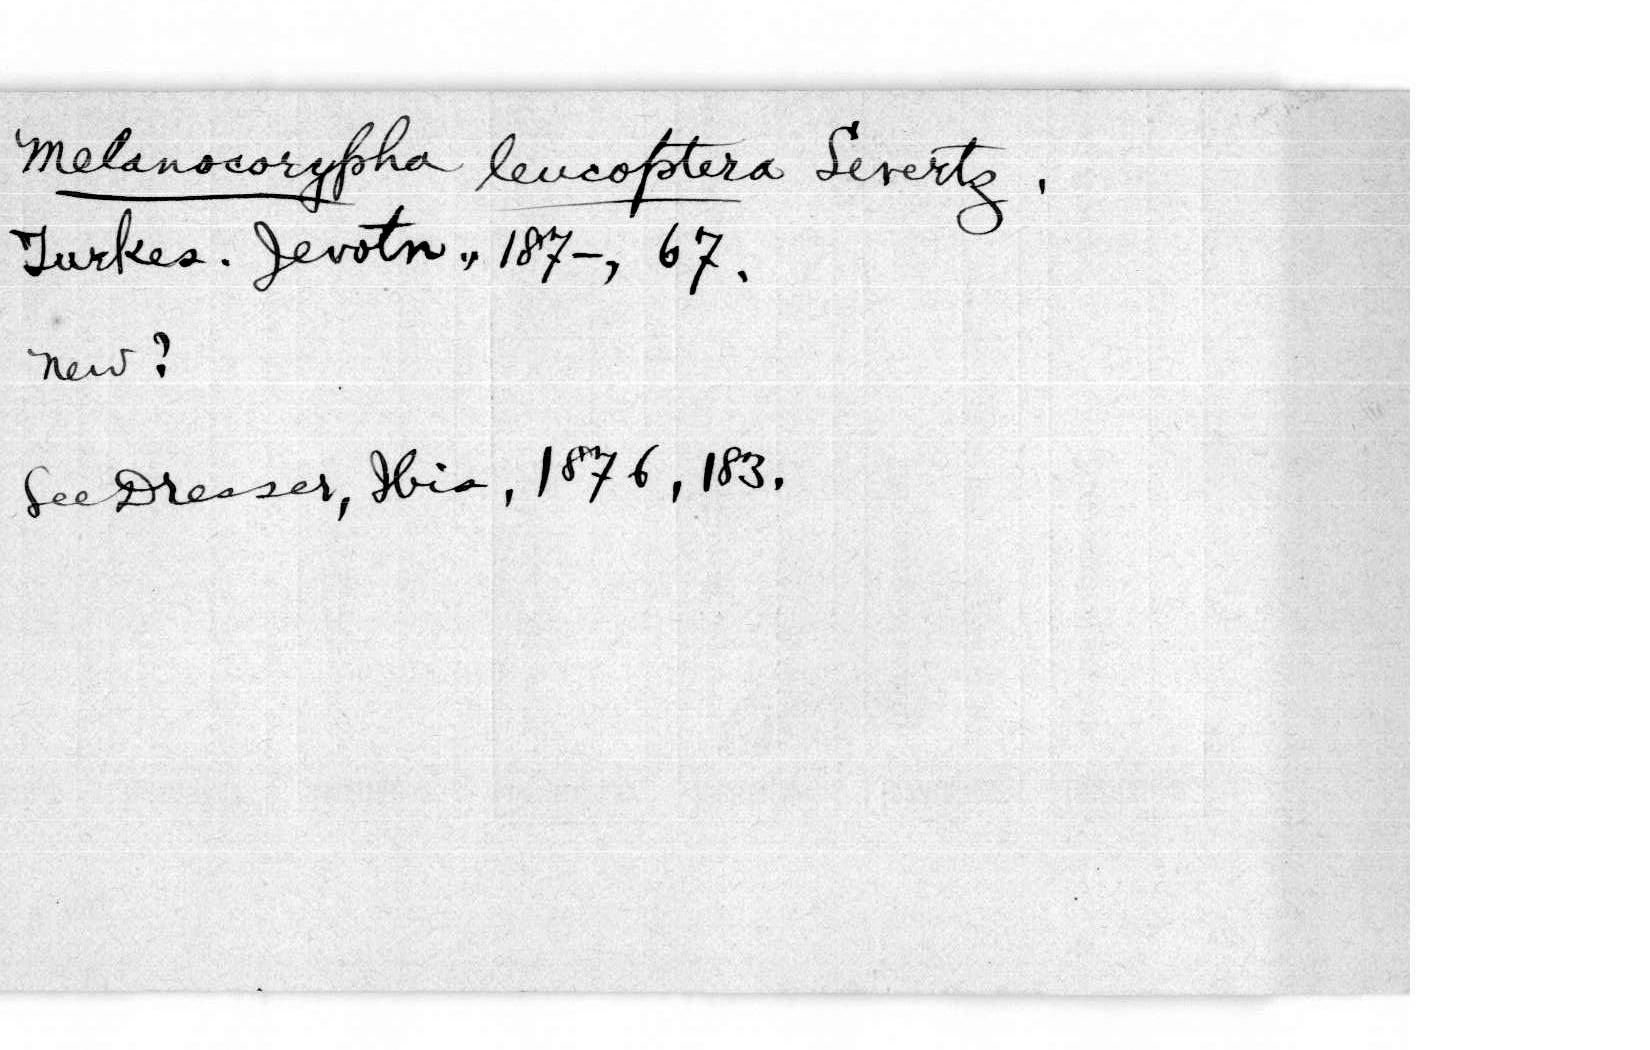 Melanocorypha leucoptera Severtz.
Turkes. Jevotn., 187-, 67.
New?
See Dresser, Ibis, 1876, 183.